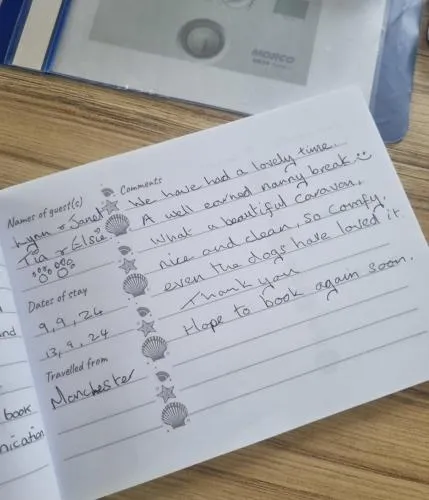 MORCO
Names of guest(s)
Lynn & Janet
Tia & Elsie
Dates of stay
9,9,24
13,9,24
Travelled from
Manchester
Comments
We have had a lovely time.
A well earned nanny break
What a beautiful caravan,
nice and clean, so comfy,
even the dogs have loved it.
Thank you
Hope to book again soon.
nd
book
nication